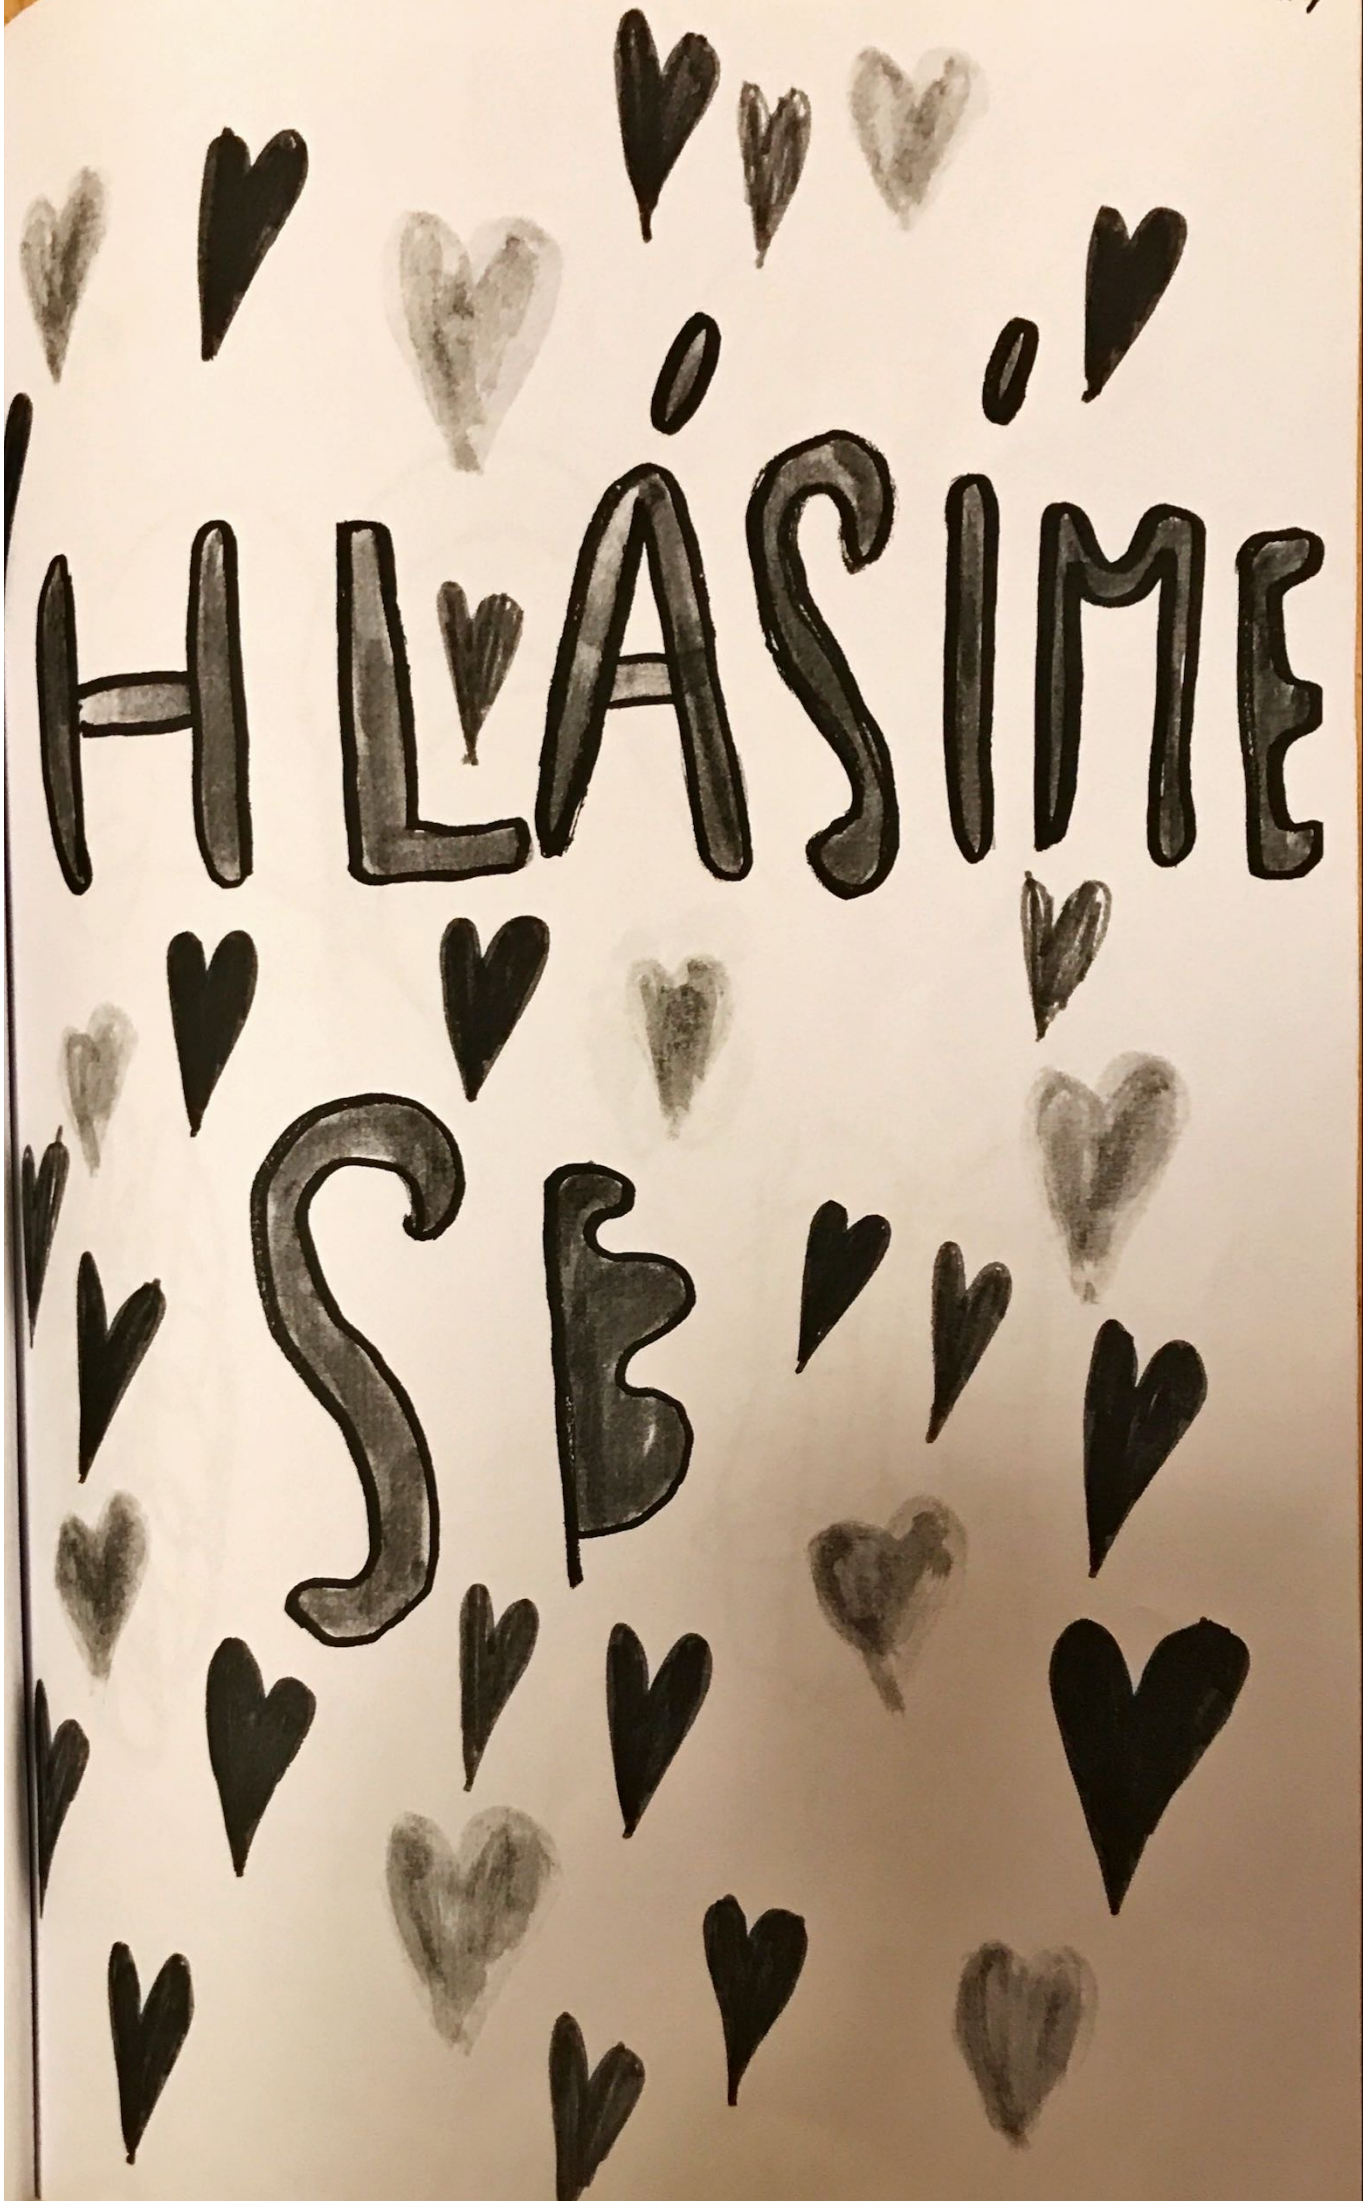 HLÁSÍME
SE